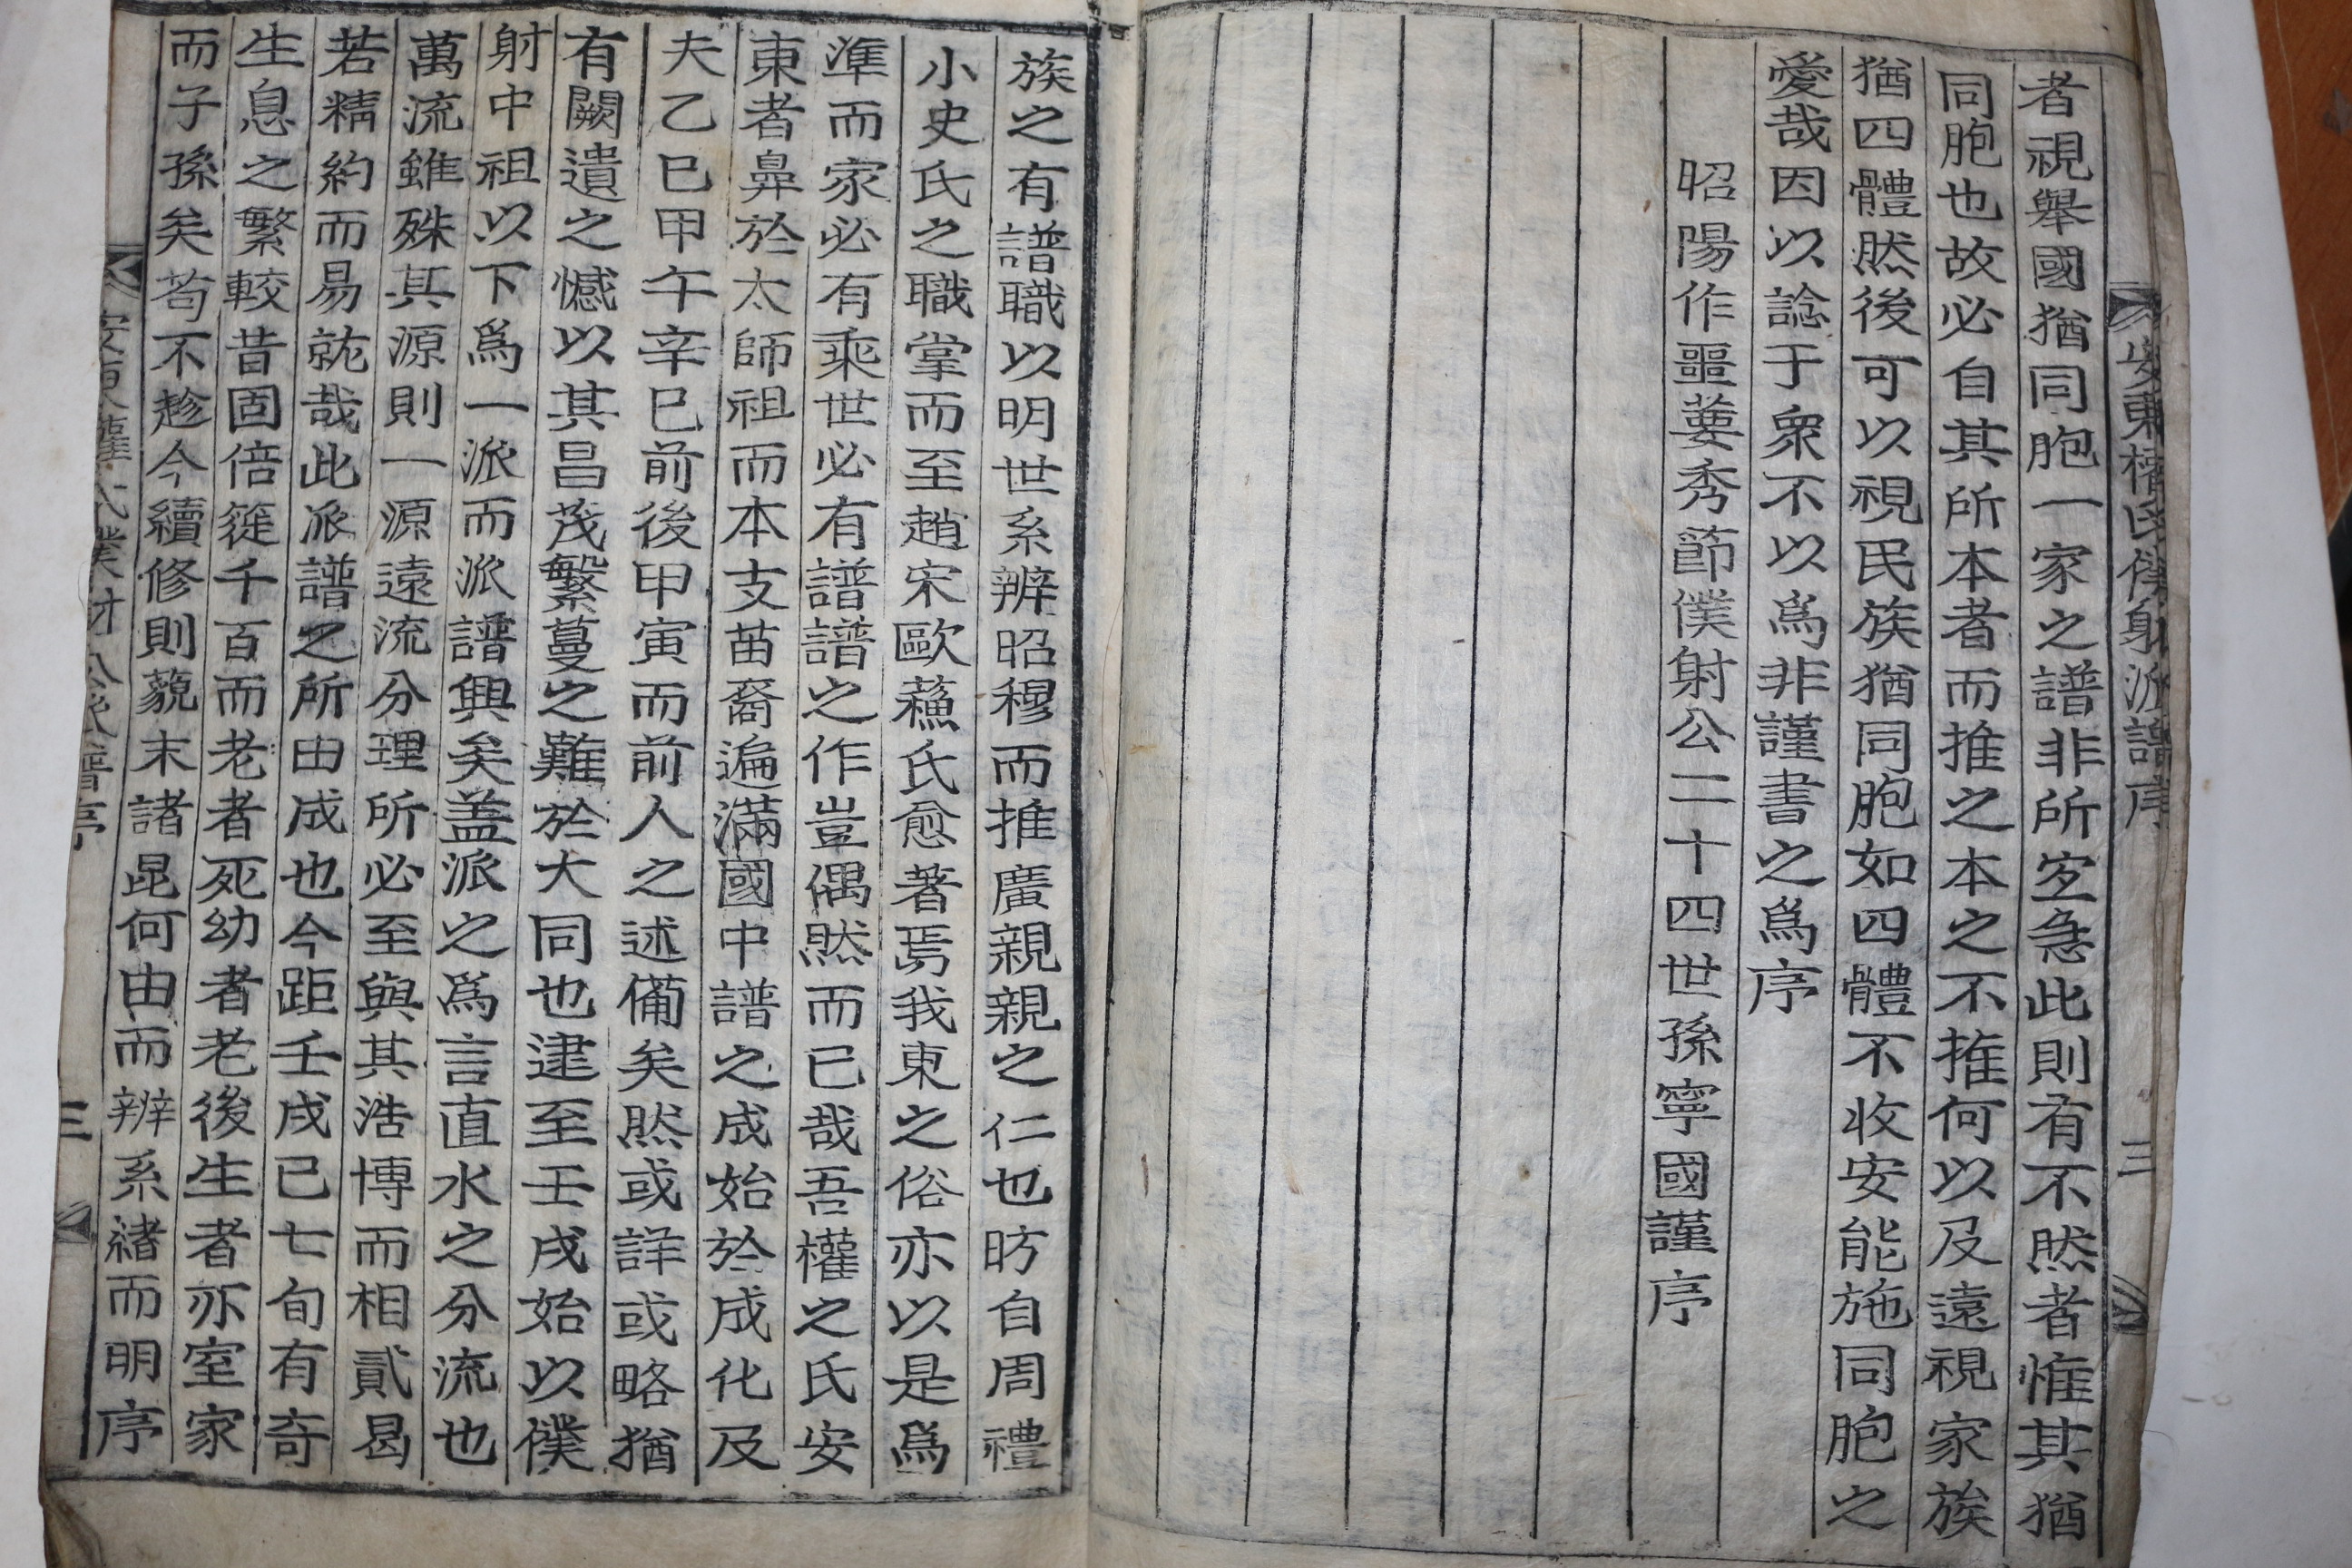 安東權氏僕射派譜序 二
者視擧國猶同胞一家之譜非所宜急此則有不然者惟其猶
同胞也故必自其所本者而推之本之不推何以及遠視家族
猶四體然後可以視民族猶同胞如四體不收安能施同胞之
愛哉因以諗于衆不以爲非謹書之爲序
昭陽作噩葽秀節僕射公二十四世孫寧國謹序
族之有譜職以明世系辨昭穆而推廣親親之仁也昉自周禮
小史氏之職掌而至趙宋歐蘓氏愈著焉我東之俗亦以是爲
準而家必有乘世必有譜譜之作豈偶然而已哉吾權之氏安
東者鼻於太師祖而本支苗裔遍滿國中譜之成始於成化及
夫乙巳甲午辛巳前後甲寅而前人之述備矣然或詳或略猶
有闕遺之憾以其昌茂繁蔓之難於大同也逮至壬戌始以僕
射中祖以下爲一派而派譜興矣盖派之爲言直水之分流也
萬流雖殊其源則一源遠流分理所必至與其浩博而相貳曷
若精約而易就哉此派譜之所由成也今距壬戌已七旬有奇
生息之繁較昔固倍簁千百而老者死幼者老後生者亦室家
而子孫矣苟不趁今續修則藐末諸昆何由而辨系緖而明序
安東權氏僕射公派譜序 三